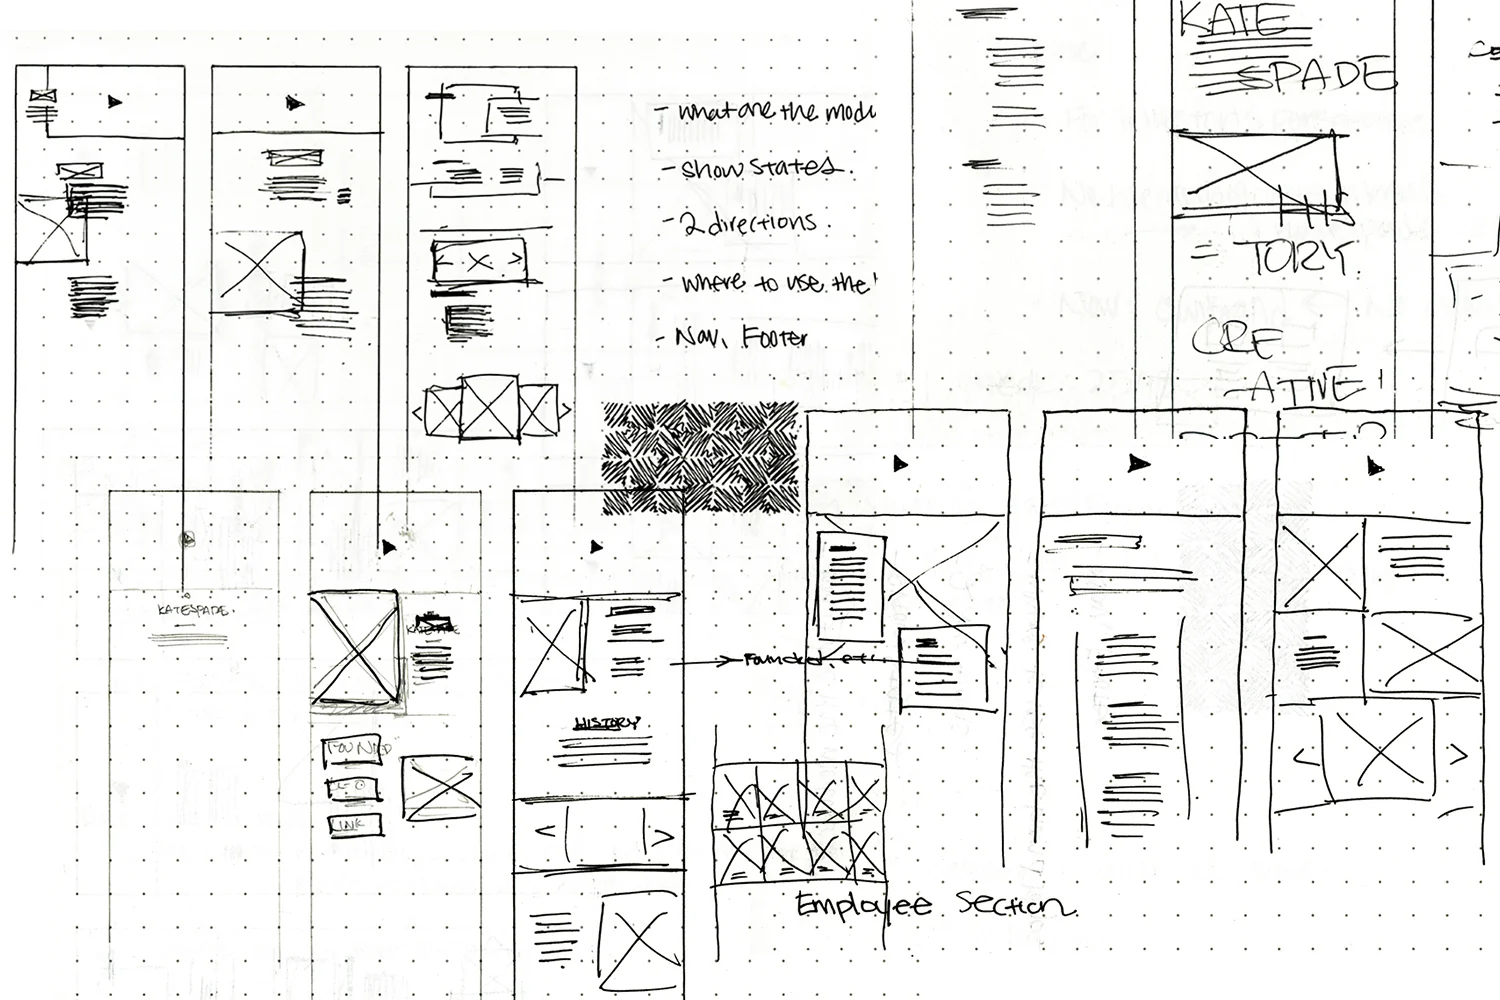 - what are the modu
- show states.
- 2 directions.
- where to use the
- Nav, Footer
KATE
SPADE
HIS
= TORY.
CRE
-ATIVE'
KATESPADE.
KATESPADE
FOUNDED
CEO
LINK
HISTORY
Founded, etc.
Employee Section